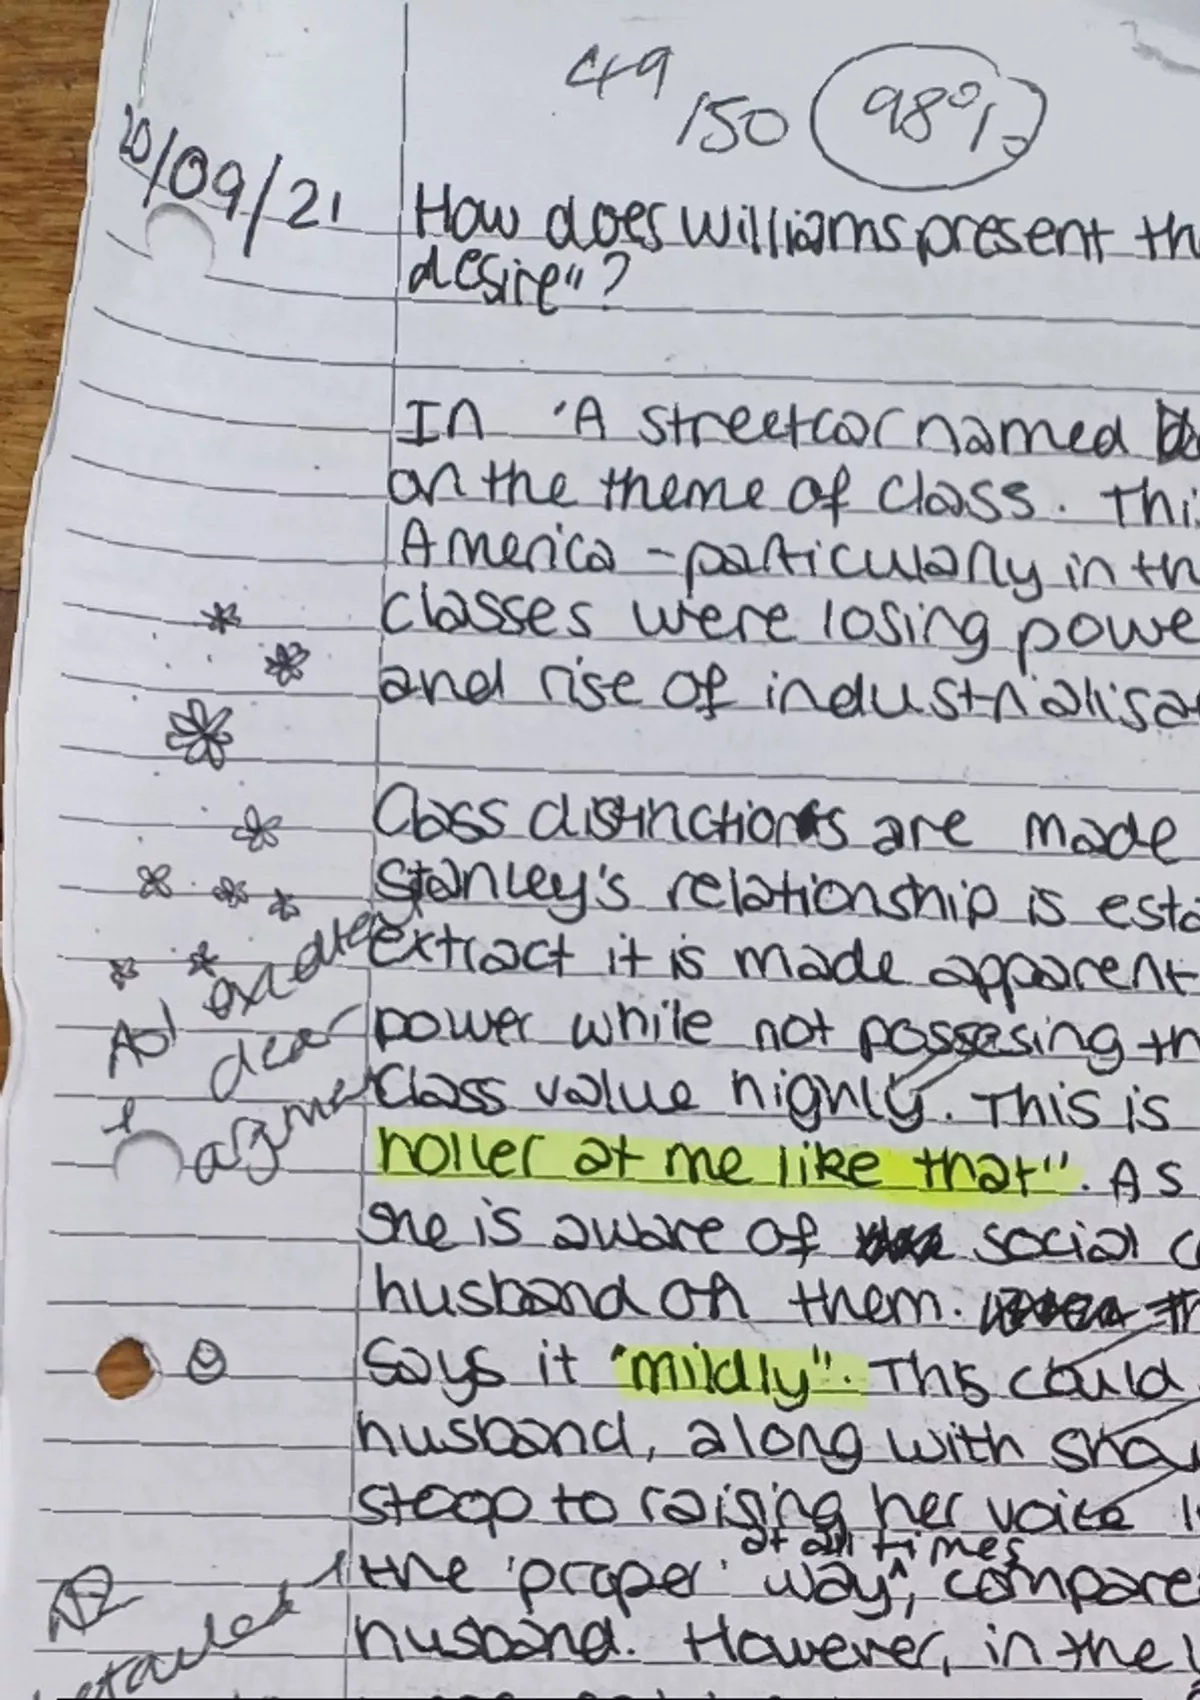 49
/50 98%
20/09/21
How does Williams present th
desire"?
In 'A streetcar named
on the theme of class. Thi
America - particularly in th
classes were losing powe
and rise of industrialisa
Class distinctions are made
Stanley's relationship is esta
extract it is made apparent
power while not possesing th
Class value highly. This is
holler at me like that". As
she is aware of social c
husband on them. th
Says it "mildly". This could
husband, along with sho
stoop to raising her voice
at all times
the 'proper' way^, compare
husband. However, in the
AO1
clear
argume